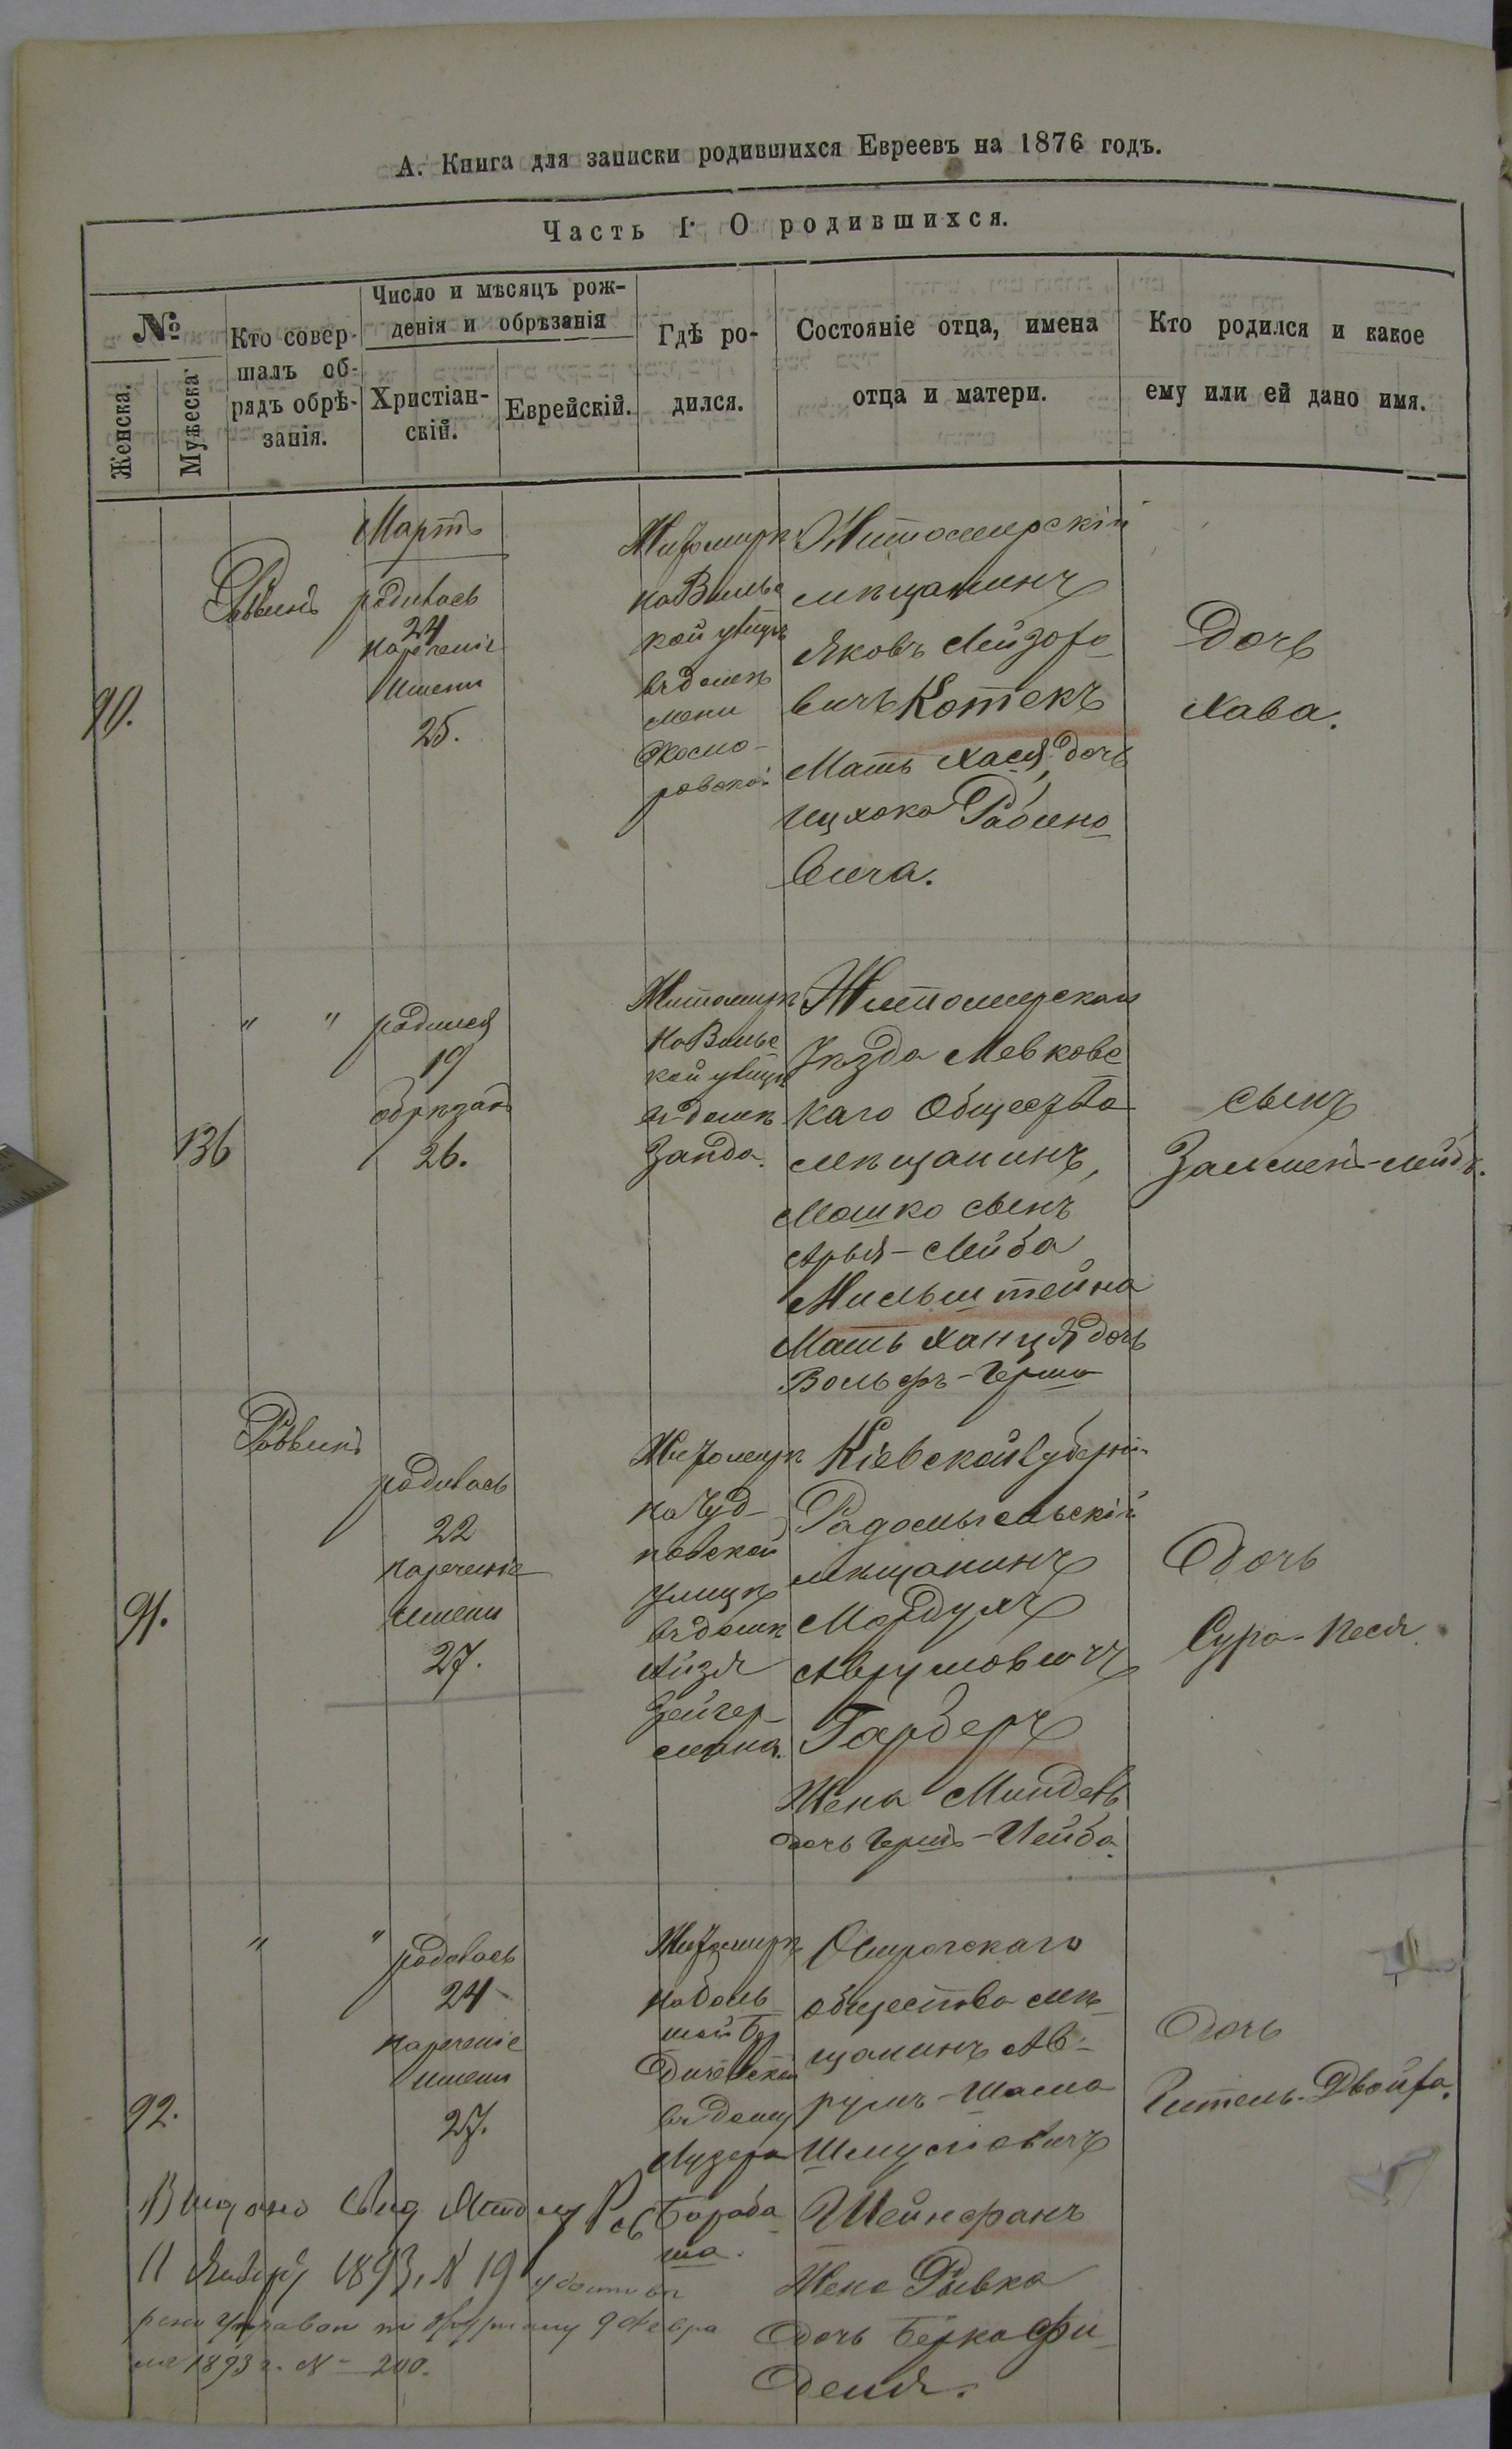 А. Книга для записки родившихся Евреевъ на 1876 годъ.
Часть I. О родившихся.
№
Женска.
Мужеска
Кто совер-
шалъ об-
рядъ обрѣ-
занія.
Число и мѣсяцъ рож-
денія и обрѣзанія
Христіан-
скій.
Еврейскій.
Гдѣ ро-
дился.
Состояніе отца, имена
отца и матери.
Кто родился и какое
ему или ей дано имя.
90.
Раввинъ
Мартъ
родилась
24
нареченіе
имени
25.
Житомирѣ
на Вильс
кой улицѣ
въ домѣ
Житомирскій
мѣщанинъ
Яковъ Лейзоро
вичъ Котекъ
Мать Хася, дочь
Ицхока Рабино
вича.
Дочь
Хава.
136
" "
родился
19
обрѣзанъ
26.
Житомирѣ
на Вильс
кой улицѣ
въ домѣ
Занда.
Житомирскаго
Уѣзда Левковс
каго Общества
мѣщанинъ,
Мошко сынъ
Арья-Лейба
Мильштейна
Мать Ханця дочь
Вольфъ-Герша
сынъ
Залмен-Лейбъ.
91.
Раввинъ
родилась
22
нареченіе
имени
27.
Житомирѣ
на Чуд-
новской
улицѣ
въ домѣ
Айзя
Зейгер
мана.
Кіевской Губерніи
Радомысльскій
мѣщанинъ
Мордухъ
Аврумовичъ
Гарберъ
Жена Миндель
дочь Герш-Лейба
Дочь
Сура-Песя.
92.
" "
родилась
24
нареченіе
имени
27.
Житомирѣ
на Боль
шой Бер
дичевской
въ дому
Лузера
Бараба
ша.
Острогскаго
общества мѣ
щанинъ Ав-
румъ-Шама
Шмулiовичъ
Шейнфанъ
Жена Рывка
дочь Берка Фи
деля.
Дочь
Гитель-Двойра.
Выдано свид
11 Января 1893, № 19
9 Февра
ля 1893 г. № 200.